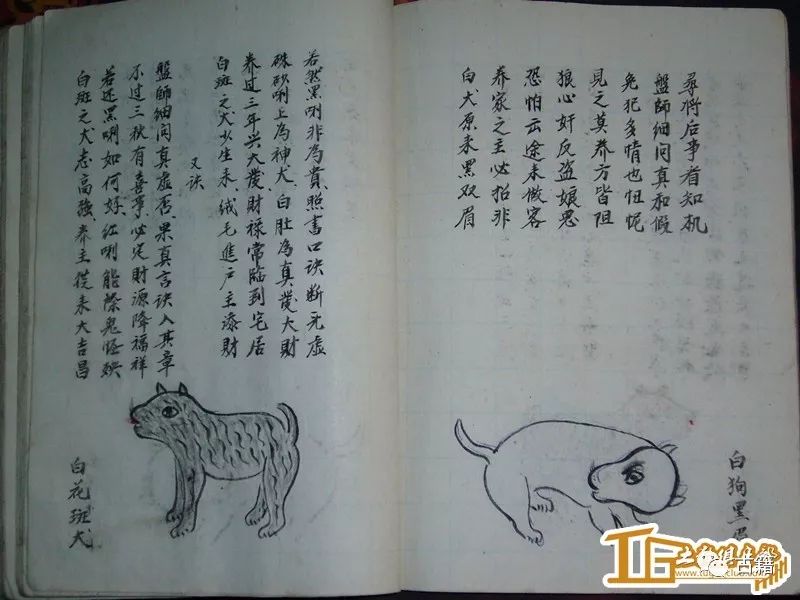 白斑之犬志高強养主從来大吉昌
若还黑唎如何好红唎能除鬼怪殃
不过三秋有喜事必定財源降福祥
盤師細问真虚否果真言诀入其章
又诀
白斑之犬少生来绒毛進户主添財
养过三年兴大發財禄常臨到宅居
硃砂唎上為神犬白肚為真發大財
若然黑唎非為貴照書口诀断无虚
白花斑犬
白犬原来黑双眉
养家之主必招非
恐怕云途来做客
狼心奸反盗娘恶
見之莫养方皆阻
免犯多情也忸怩
盤師細问真和假
尋將后事看知机
白狗黑眉
古籍